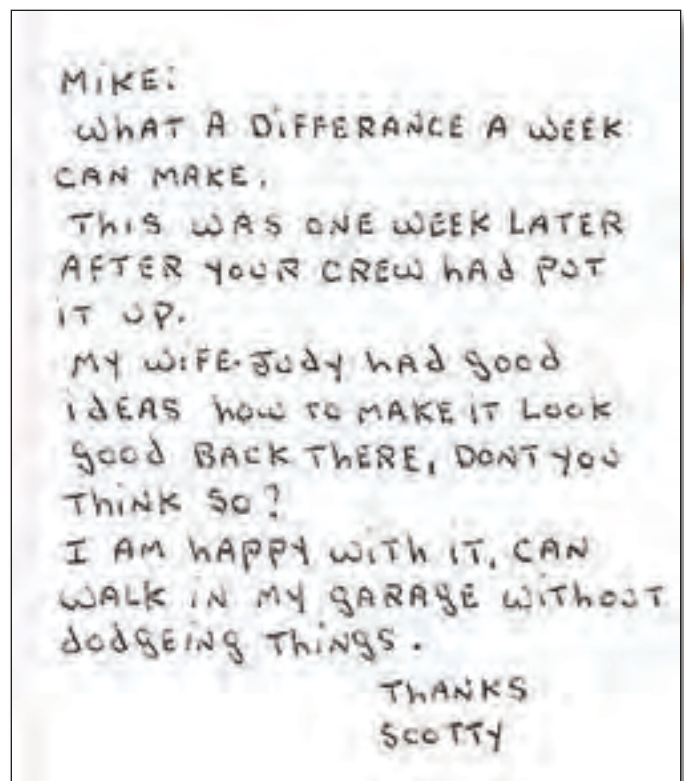 MIKE:
WHAT A DIFFERANCE A WEEK
CAN MAKE.
THIS WAS ONE WEEK LATER
AFTER YOUR CREW HAD PUT
IT UP.
MY WIFE-JUDY HAD GOOD
IDEAS HOW TO MAKE IT LOOK
GOOD BACK THERE, DONT YOU
THINK SO?
I AM HAPPY WITH IT, CAN
WALK IN MY GARAGE WITHOUT
DODGEING THINGS.
THANKS
SCOTTY